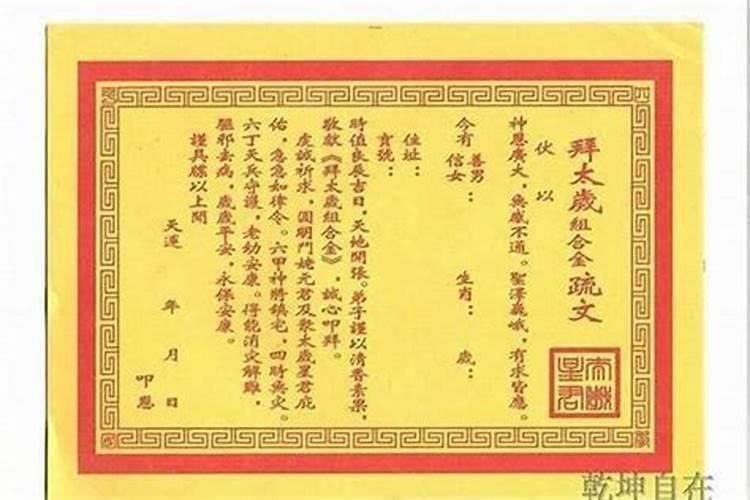 拜太歲組合金疏文
伏以
神恩廣大，無感不通。聖澤巍峨，有求皆應。
今有善男信女： 生肖： 歲：
住址：
寶號：
時值良辰吉日，天地開張。弟子謹以清香素果，
敬獻《拜太歲組合金》，誠心叩拜。
虔誠祈求，圓明鬥姥元君及眾太歲星君庇
佑，急急如律令。六甲神將鎮宅，四時無災。
六丁天兵守護，老幼安康。得能消災解難，
驅邪去病，歲歲平安，永保安康。
謹具牒以上聞
天運 年 月 日
叩恩
太歲星君
乾坤自在